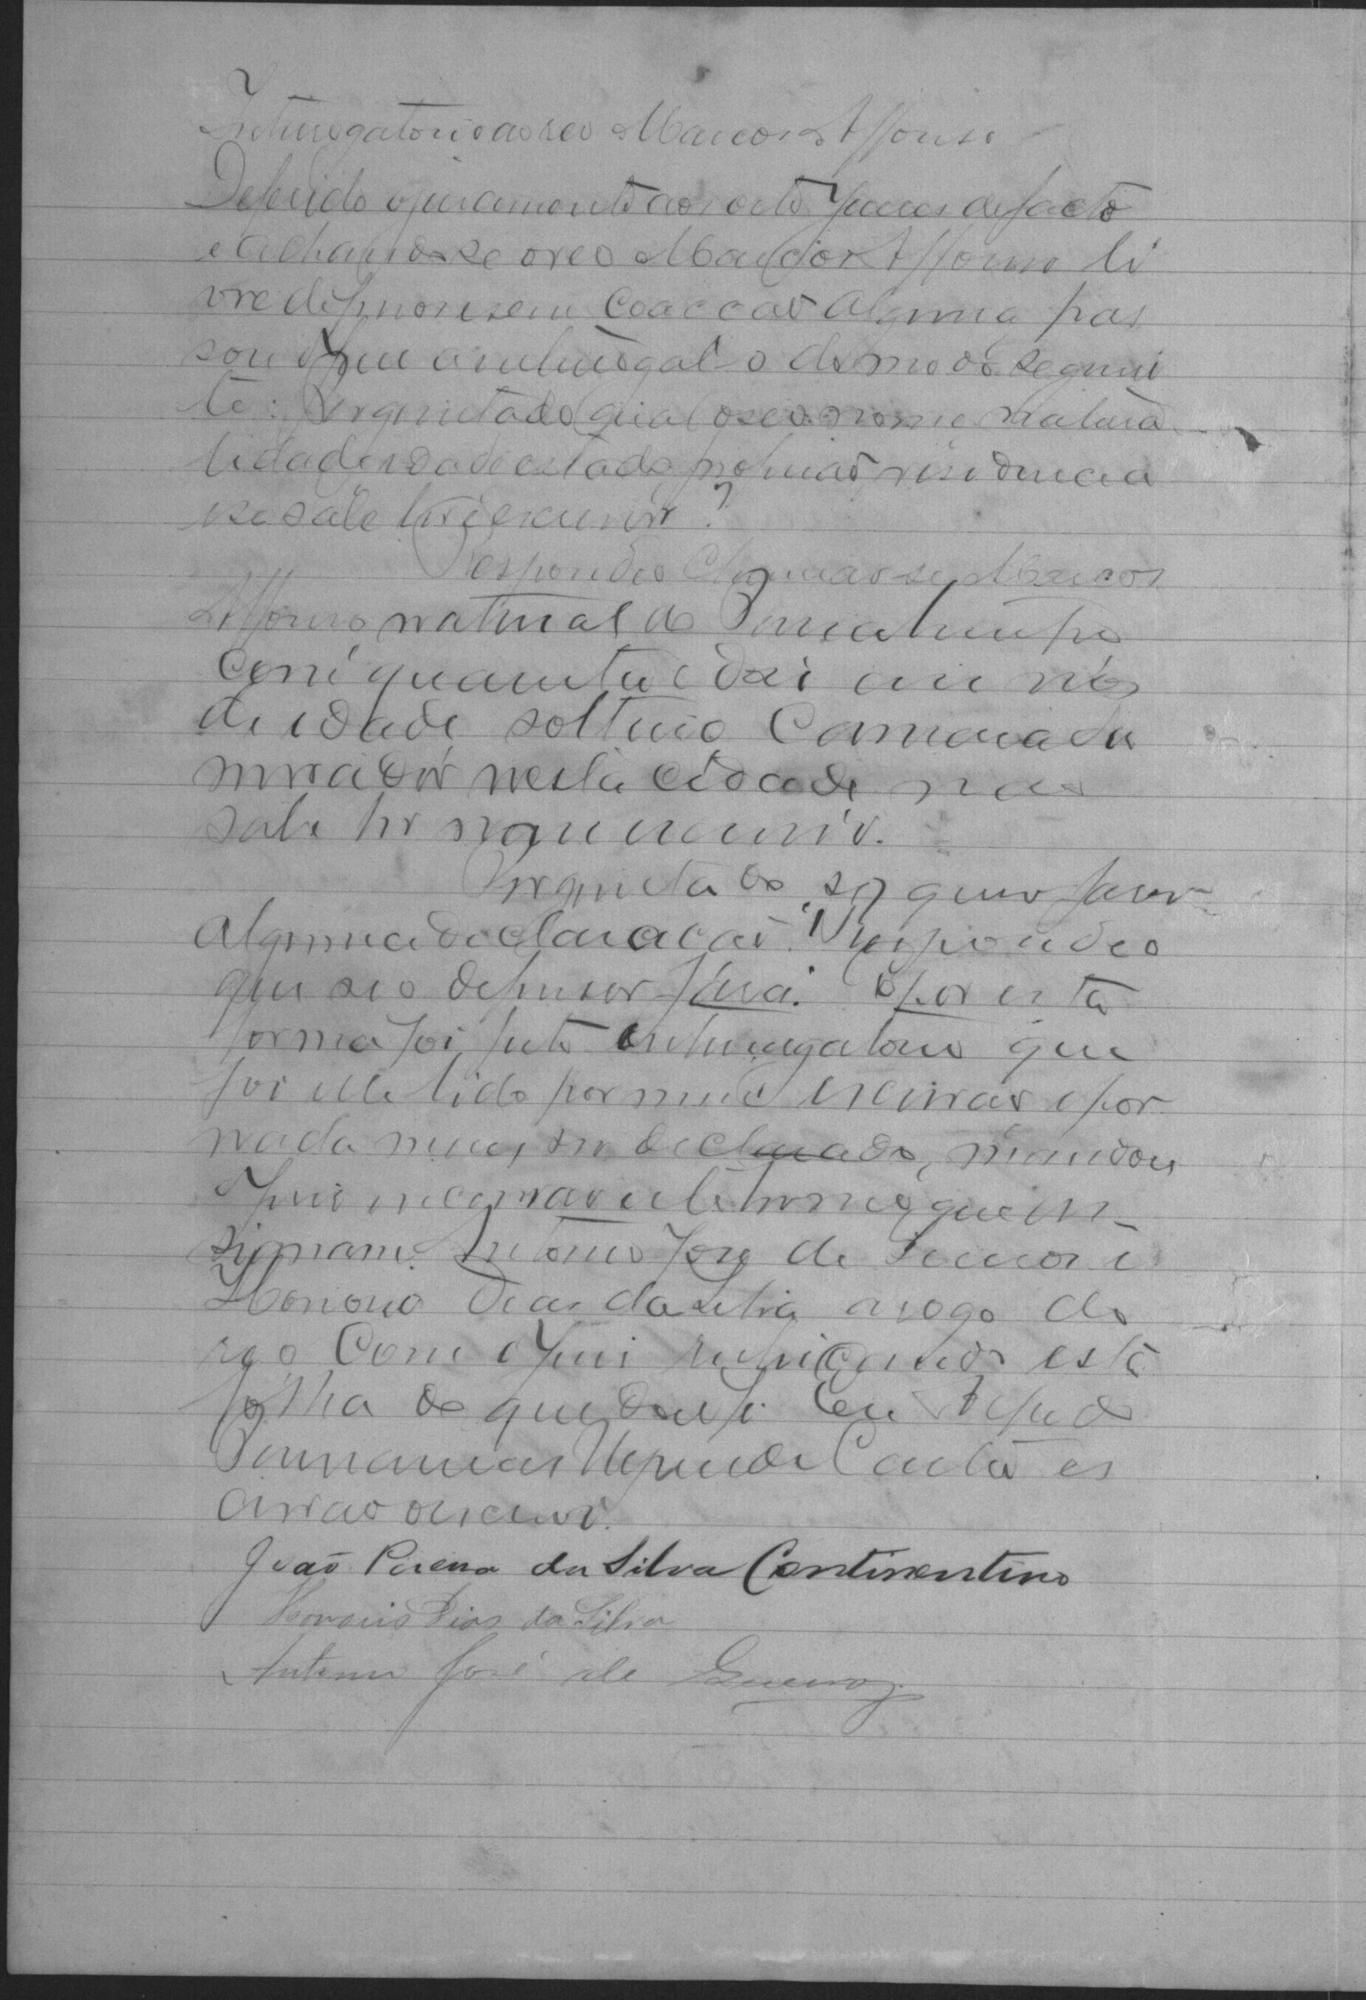 Interrogatorio ao reo Marcos Affonso
Deferido o juramento aos este Jures de facto
e achando se o reo Marcos Affonso li
vre de ferros e sem coaccão alguma pas
sou o Juiz a interrogal-o do modo seguin
te: Perguntado qual o seo nome natura
lidade idade estado profissão, residencia
e se sabe ler e escrever?
Respondeo Chamar-se Marcos
Affonso natural de
com quarenta e dois annos
de idade, solteiro Camarada
morador nesta cidade não
sabe ler nem escrever.
Perguntado se quer fazer
alguma declaração? Respondeo
que seo defensor fará. E por esta
forma foi feito interrogatorio que
foi lido por mim escrivão e por
nada mais ser declarado, mandou
o Juiz encerrar este termo que as-
signam. Antonio Jose de e
Honorio Dias da Silva a rogo do
reo com o Juiz rubricando esta
folha do que dou fé. Eu
de Castro es
crivão o escrevi.
João Pereira da Silva Continentino
Honorio Dias da Silva
Antonio José de